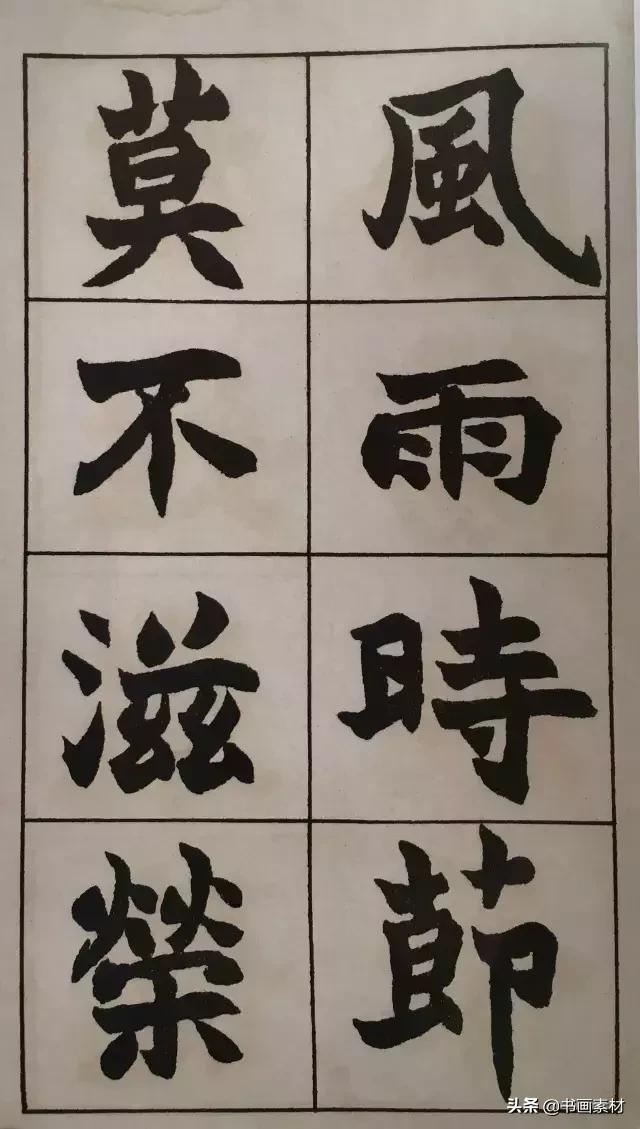 風雨時節
莫不滋榮
头条 @书画素材